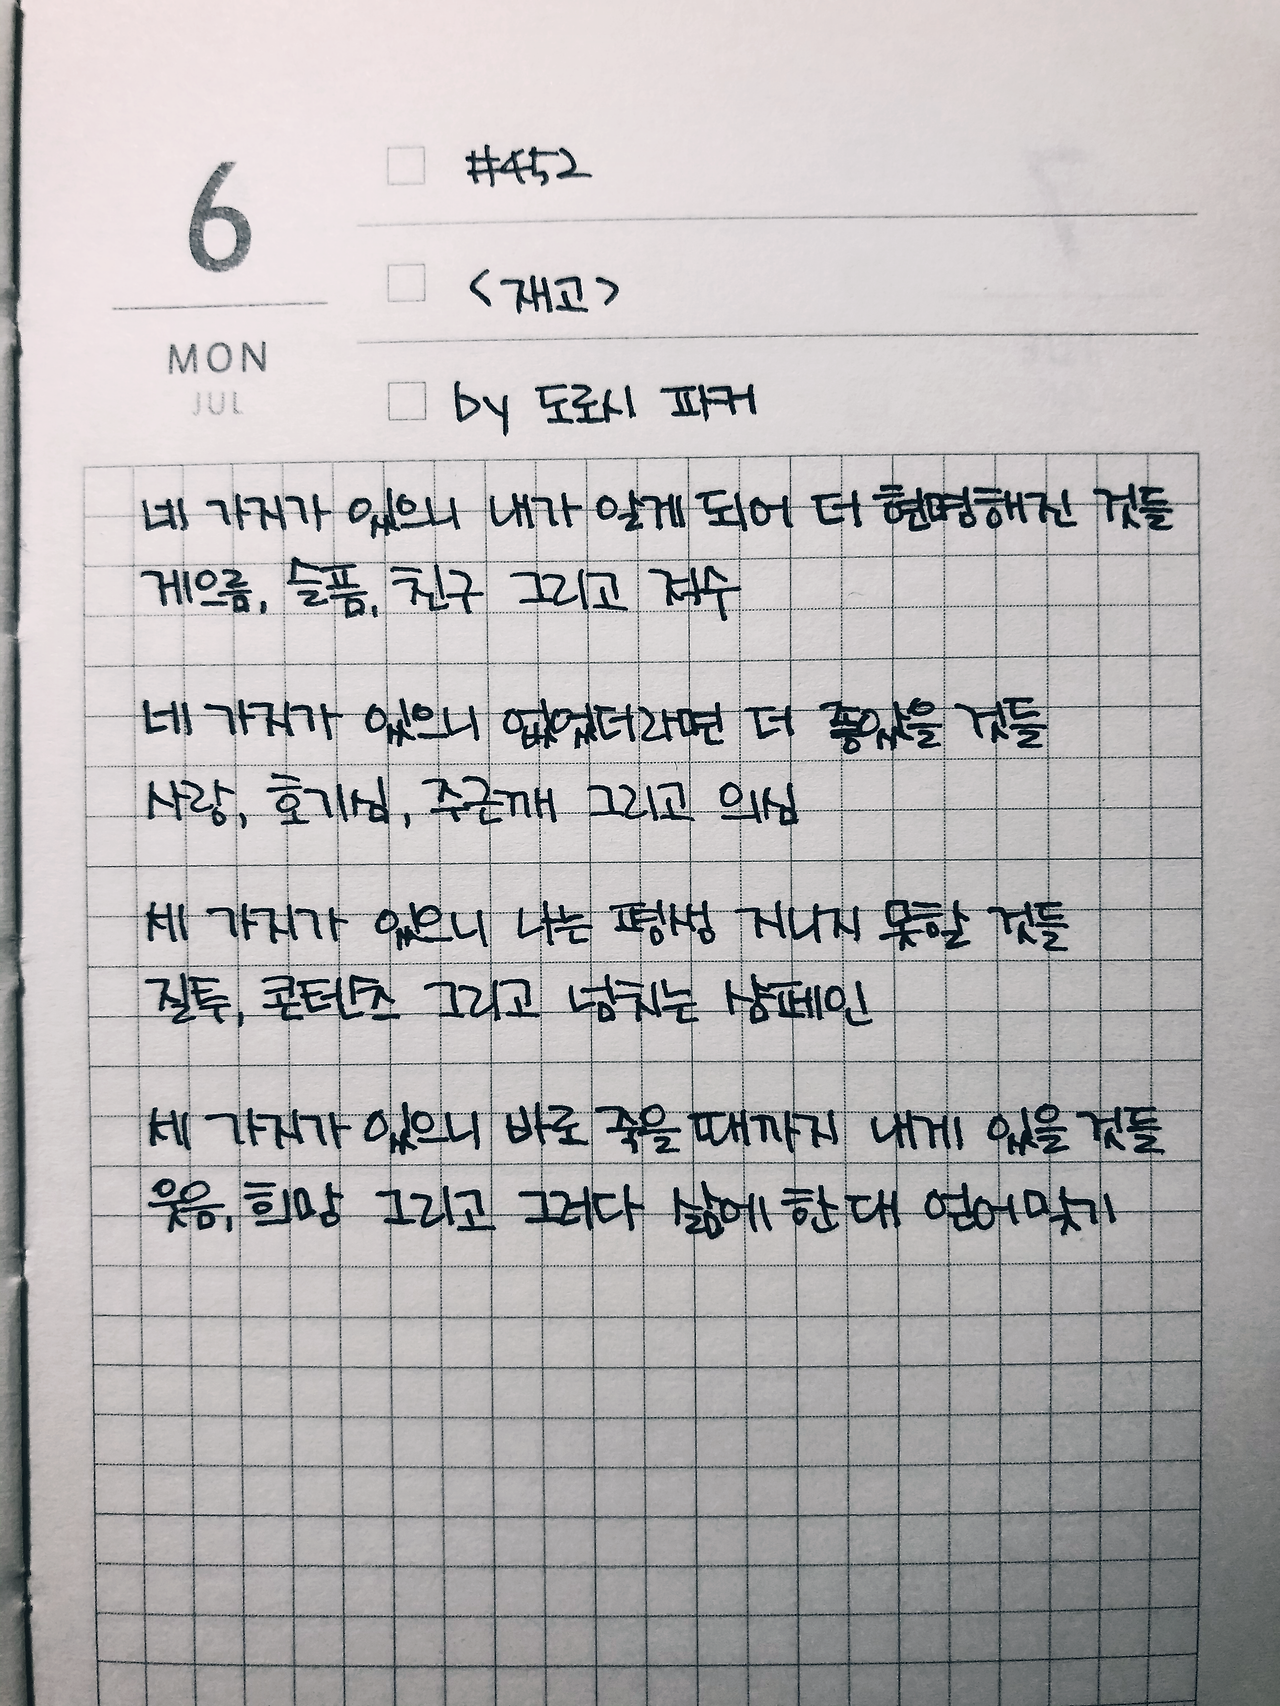 6
MON
JUL
#452
<재고>
by 도로시 파커
네 가지가 있으니 내가 알게 되어 더 현명해진 것들
게으름, 슬픔, 친구 그리고 적수
네 가지가 있으니 없었더라면 더 좋았을 것들
사랑, 호기심, 주근깨 그리고 의심
세 가지가 있으니 나는 평생 지니지 못할 것들
질투, 콘텐츠 그리고 넘치는 샴페인
세 가지가 있으니 바로 죽을 때까지 내게 있을 것들
웃음, 희망 그리고 그러다 삶에 한 대 얻어맞기